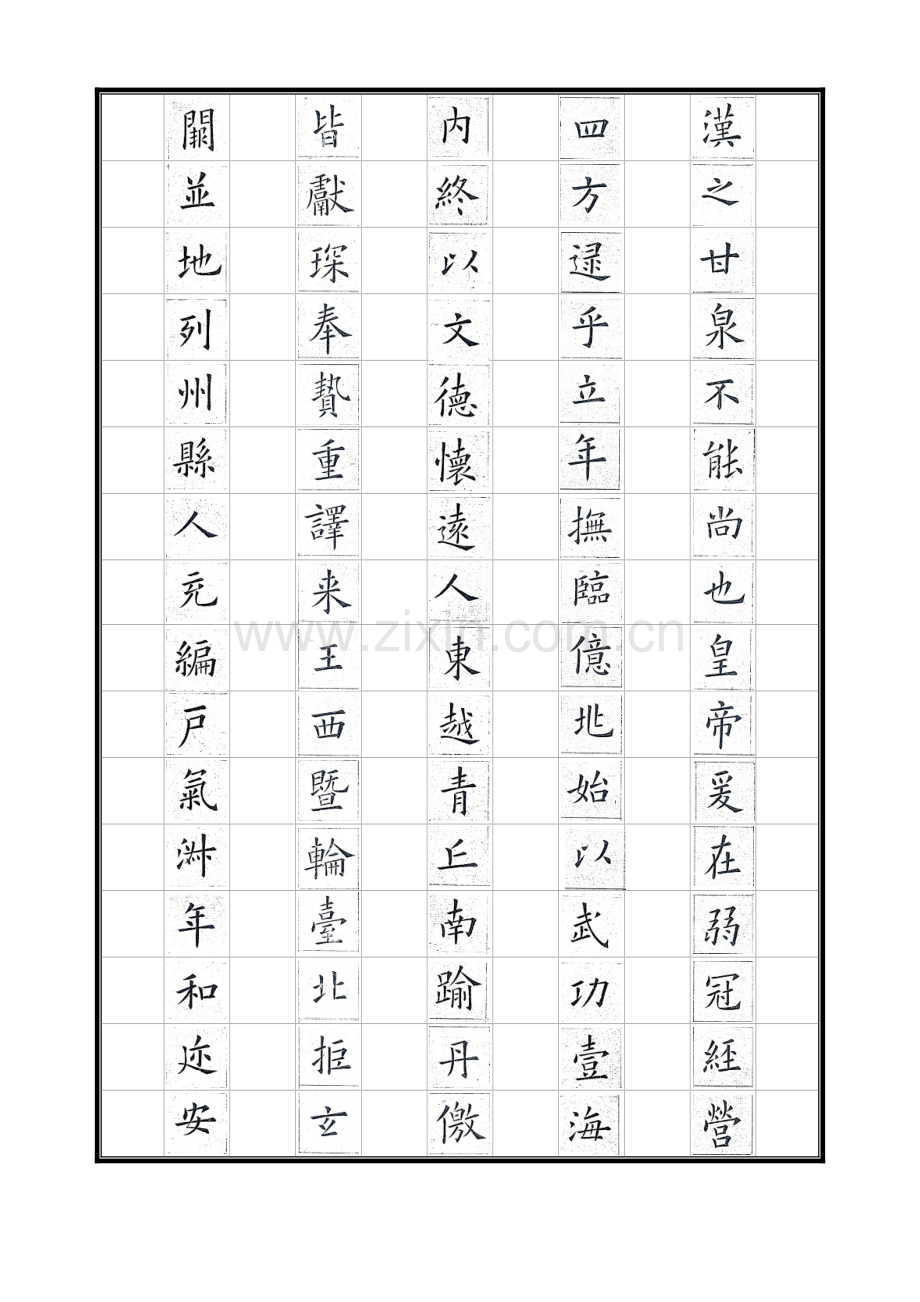 漢之甘泉不能尚也皇帝爰在弱冠經營
四方逯乎立年撫臨億兆始以武功壹海
内終以文德懷遠人東越青丘南踰丹儌
皆獻琛奉贄重譯来王西暨輪臺北拒玄
闕並地列州縣人充編戸氣淋年和迩安
www.zixin.com.cn